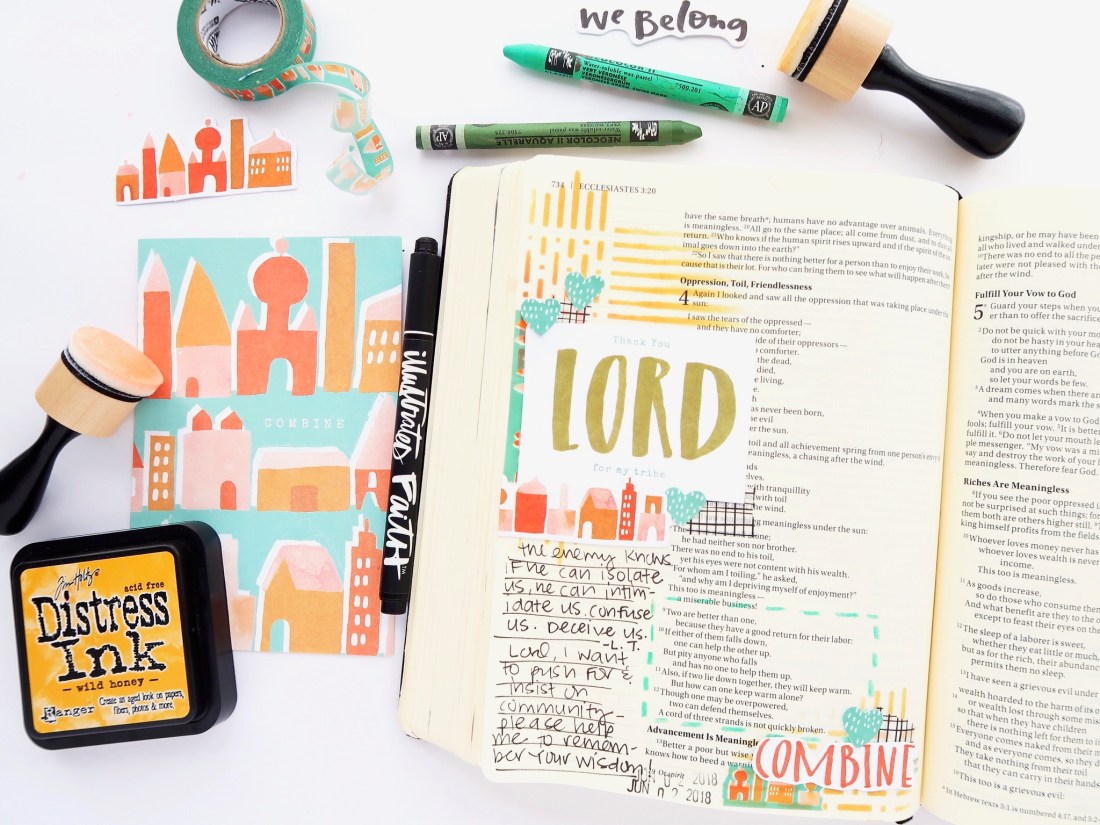 we Belong
NEOCOLOR II
Water-soluble wax pastel
7500.201
AP
NEOCOLOR II AQUARELLE
AP
COMBINE
illustrated Faith
Tim Holtz
acid free
Distress
Ink
wild honey
Create an aged look on papers,
fibers, photos & more.
Ranger
734 | ECCLESIASTES 3:20
have the same breath; humans have no advantage over animals. Everything
is meaningless. 20All go to the same place; all come from dust, and to dust all
return. 21Who knows if the human spirit rises upward and if the spirit of the
imal goes down into the earth?"
22So I saw that there is nothing better for a person than to enjoy their work, be
cause that is their lot. For who can bring them to see what will happen after them
Oppression, Toil, Friendlessness
4 Again I looked and saw all the oppression that was taking place under the
sun:
I saw the tears of the oppressed—
and they have no comforter;
side of their oppressors—
comforter.
the dead,
died,
living,
as never been born,
evil
the sun.
toil and all achievement spring from one person's envy
meaningless, a chasing after the wind.
with tranquillity
with toil
the wind.
meaningless under the sun:
he had neither son nor brother.
There was no end to his toil,
yet his eyes were not content with his wealth.
"For whom am I toiling," he asked,
"and why am I depriving myself of enjoyment?"
This too is meaningless—
a miserable business!
9Two are better than one,
because they have a good return for their labor:
10If either of them falls down,
one can help the other up.
But pity anyone who falls
and has no one to help them up.
11Also, if two lie down together, they will keep warm.
But how can one keep warm alone?
12Though one may be overpowered,
two can defend themselves.
A cord of three strands is not quickly broken.
Advancement Is Meaningless
13Better a poor but wise
knows how to heed a warning
Thank You
LORD
for my tribe
the enemy knows
if he can isolate
us, he can intim-
idate us. confuse
us. Deceive us.
-L.T.
Lord, I want
to push for &
insist on
community-
please help
me to remem-
ber Your wisdom!
JUN 02 2018
JUN 02 2018
COMBINE
kingship, or he may have been
all who lived and walked under
16There was no end to all the pe
later were not pleased with the
after the wind.
Fulfill Your Vow to God
5 Guard your steps when you
er than to offer the sacrifice
2Do not be quick with your mo
do not be hasty in your hea
to utter anything before Go
God is in heaven
and you are on earth,
so let your words be few.
3A dream comes when there are
and many words mark the s
4When you make a vow to God,
fools; fulfill your vow. 5It is better
fulfill it. 6Do not let your mouth le
ple messenger, "My vow was a mi
say and destroy the work of your h
meaningless. Therefore fear God.
Riches Are Meaningless
8If you see the poor oppressed i
not be surprised at such things; for
them both are others higher still. 9
king himself profits from the fields.
10Whoever loves money never has
whoever loves wealth is never
income.
This too is meaningless.
11As goods increase,
so do those who consume them
And what benefit are they to the o
except to feast their eyes on the
12The sleep of a laborer is sweet,
whether they eat little or much,
but as for the rich, their abundanc
permits them no sleep.
13I have seen a grievous evil under
wealth hoarded to the harm of its o
14or wealth lost through some mis
so that when they have children
there is nothing left for them to i
15Everyone comes naked from their m
and as everyone comes, so they d
They take nothing from their toil
that they can carry in their hands
16This too is a grievous evil: